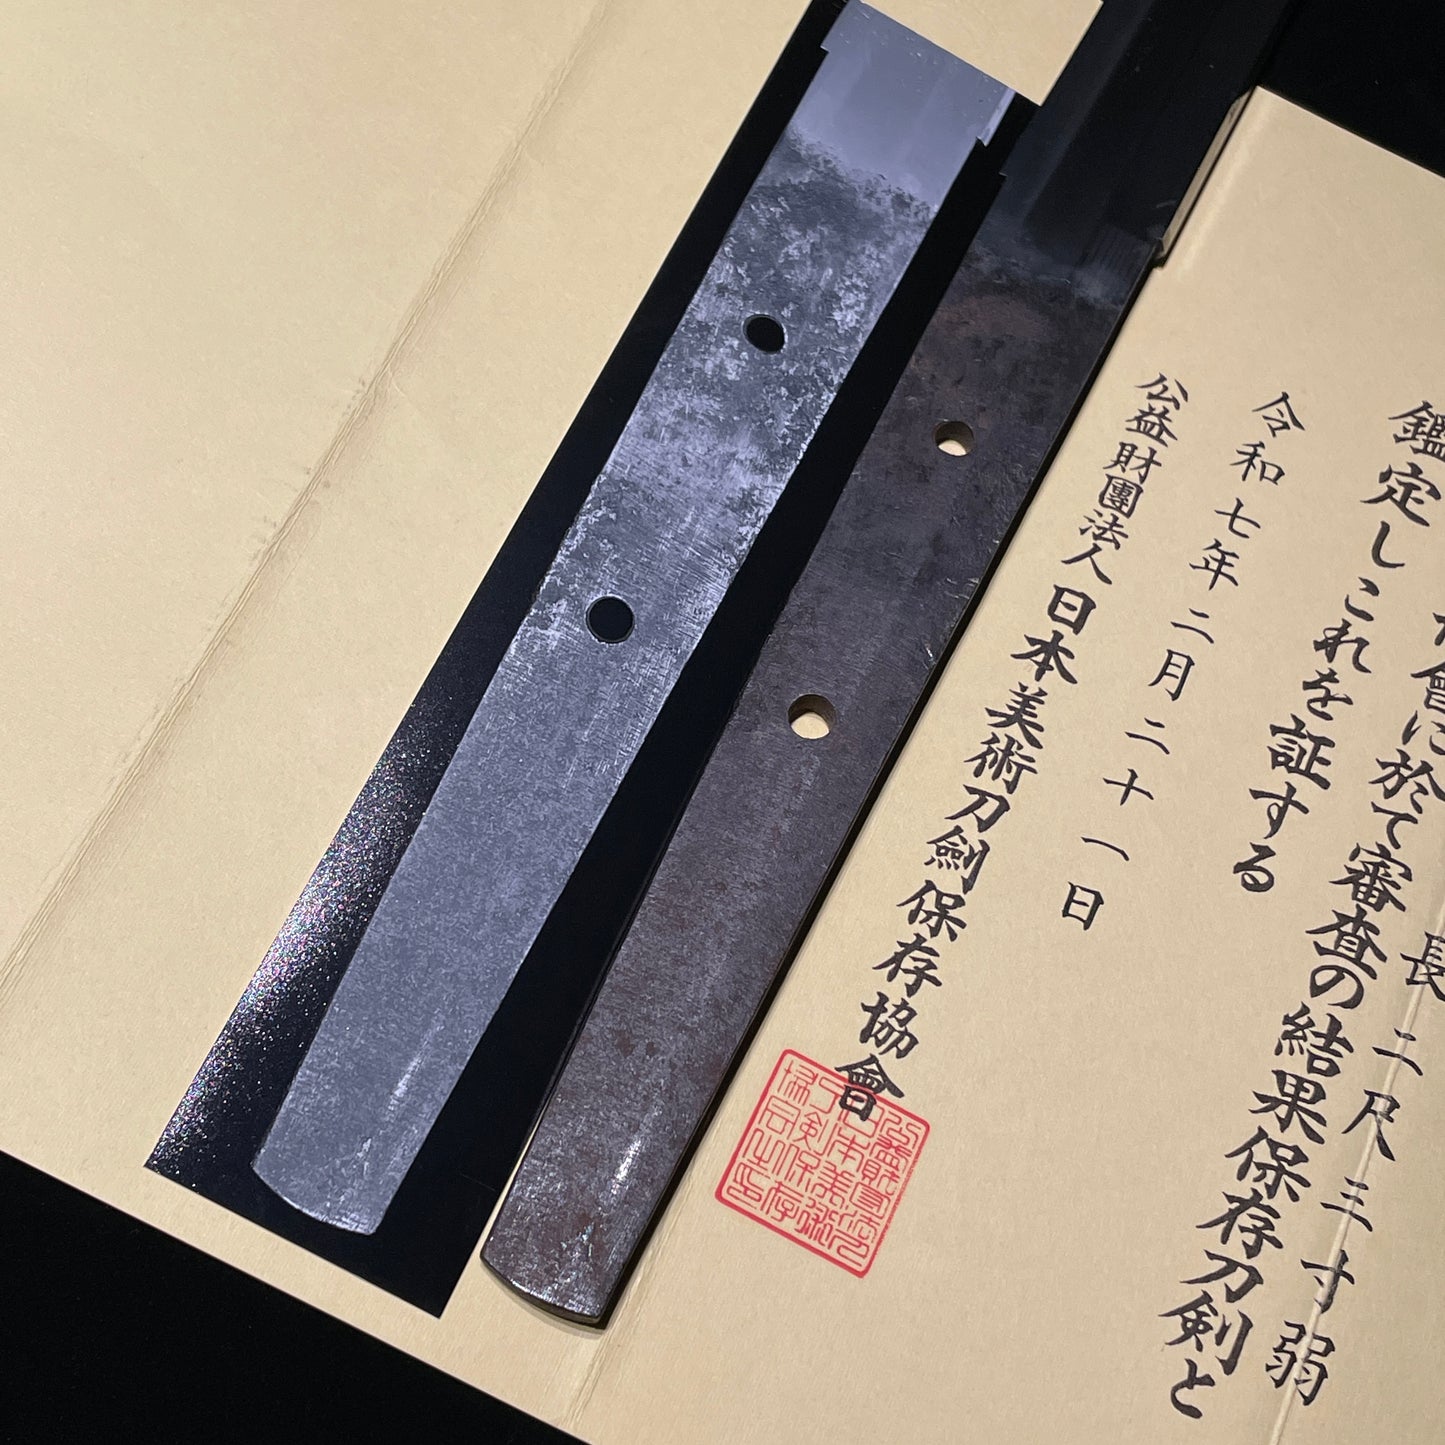 長 二尺三寸弱
會に於て審査の結果保存刀剣と
鑑定しこれを証する
令和七年二月二十一日
公益財團法人日本美術刀劍保存協會